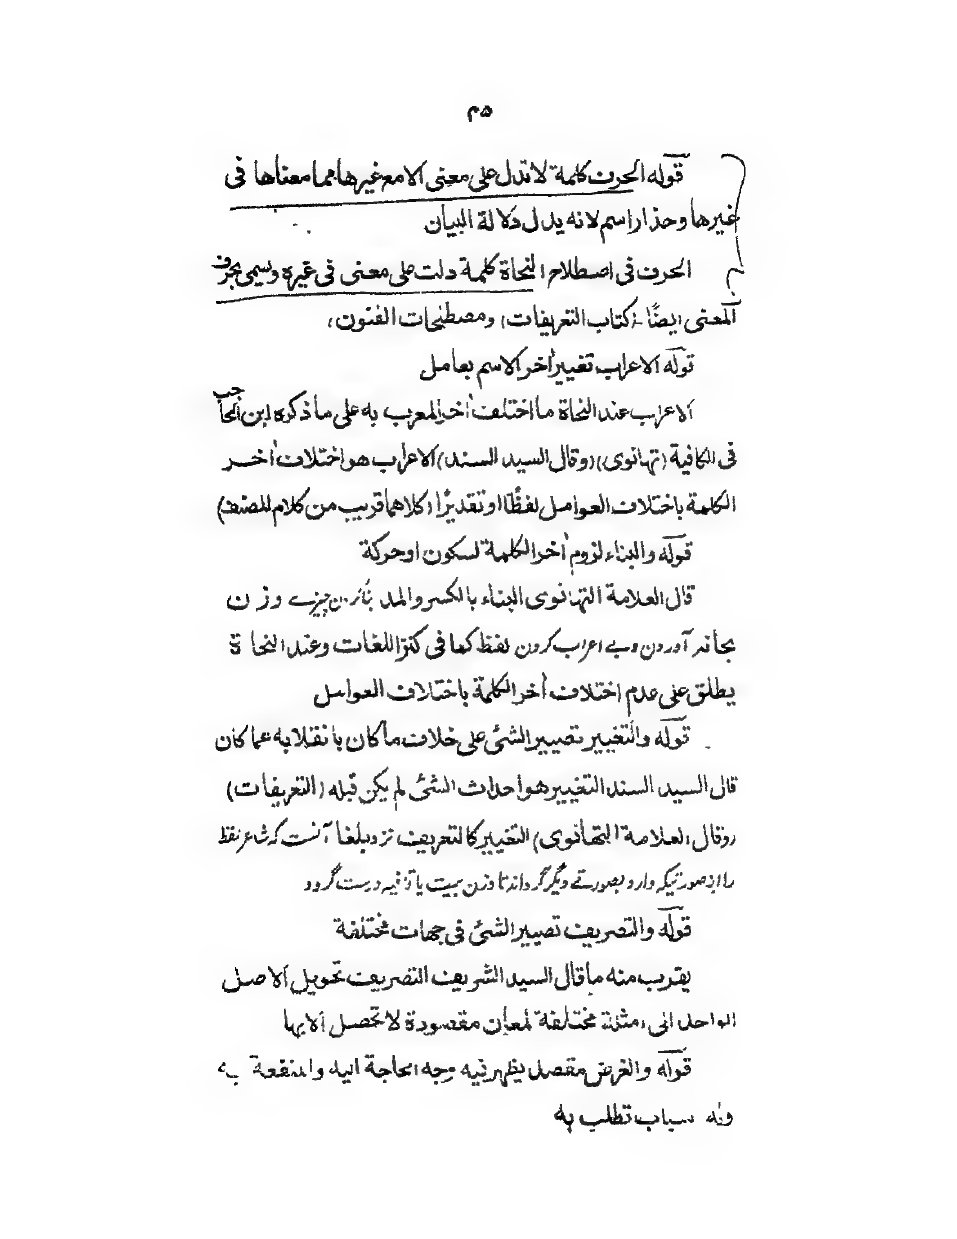 ۴۵
قوله الحرف كلمة لا تدل على معنى الا مع غيرها مما معناها فى
غيرها وحذ اراسم لانه يدل دلالة البيان
الحرف فى اصطلاح النحاة كلمة دلت على معنى فى غيره وسيمى بحرف
المعنى ايضًا (كتاب التعريفات) ومصطلحات الفنون،
قوله الاعراب تغيير اٰخر الاسم بعامل
الاعراب عند النحاة ما اختلف اٰخر المعرب به على ما ذكره ابن الحاجب
فى الكافية (تهانوى) (وقال السيد السند) الاعراب هو اختلاف اٰخر
الكلمة باختلاف العوامل لفظًا او تقديرًا (كلاهما قريب من كلام المصنف)
قوله والبناء لزوم اٰخر الكلمة لسكون او حركة
قال العلامة التهانوى البناء بالكسر والمد چيزے وزن
بجائے آوردن وبے اعراب كردن لفظ كما فى كنز اللغات وعند النحاة
يطلق على عدم اختلاف اٰخر الكلمة باختلاف العوامل
قوله والتغيير تصيير الشئ على خلاف ما كان بانقلابه عما كان
قال السيد السند التغيير هو احداث الشئ لم يكن قبله (التعريفات)
(وقال العلامة التهانوى) التغيير كالتعريف نزد بلغا آنست كہ شاعر لفظ
را از صورتيكہ دارد بصورتے ديگر گرداند تا وزن بيت يا قافيہ درست گردد
قوله والتصريف تصيير الشئ فى جهات مختلفة
يقرب منه ما قال السيد الشريف التصريف تحويل الاصل
الواحد الى امثلة مختلفة لمعان مقصودة لا تحصل الا بها
قوله والغرض مقصد يظهر فيه وجه الحاجة اليه والمنفعة به
وله اسباب تطلب به